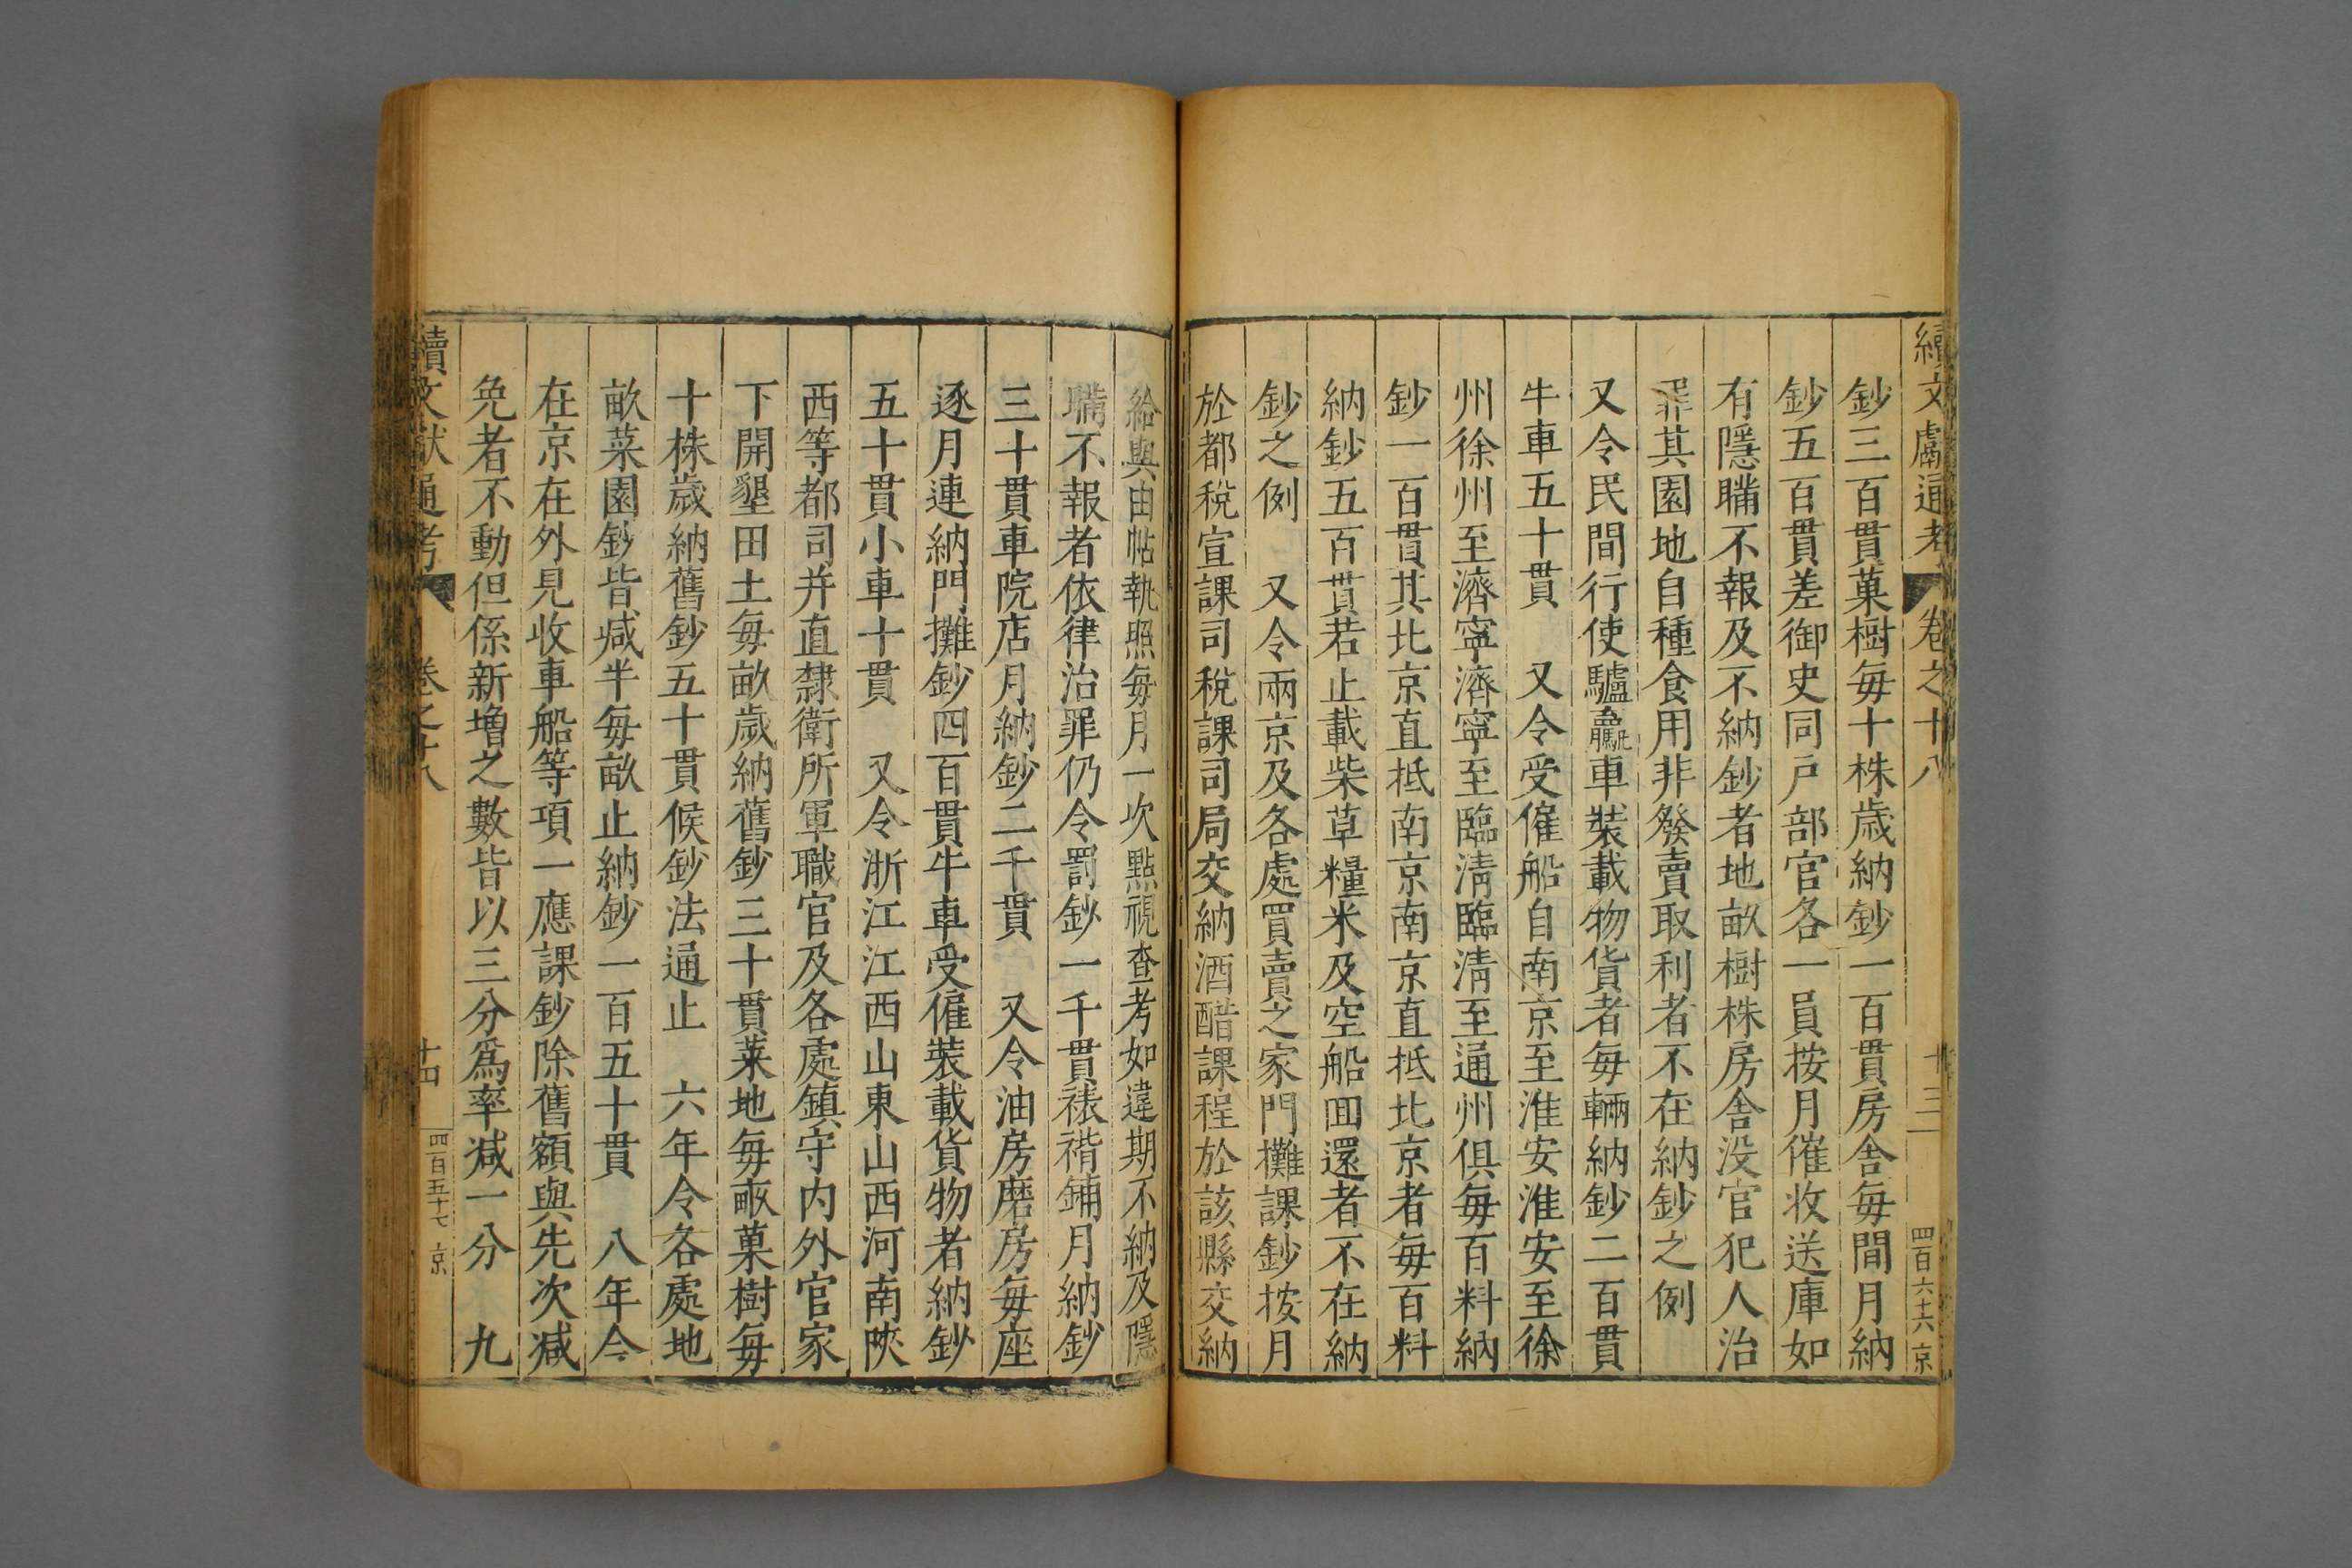 續文獻通考 卷之十八 十三 四百六十六 京
鈔三百貫菓樹每十株歲納鈔一百貫房舍每間月納
鈔五百貫差御史同戶部官各一員按月催收送庫如
有隱瞞不報及不納鈔者地畝樹株房舍没官犯人治
罪其園地自種食用非發賣取利者不在納鈔之例
又令民間行使驢騾車裝載物貨者每輛納鈔二百貫
牛車五十貫 又令受僱船自南京至淮安淮安至徐
州徐州至濟寧濟寧至臨清臨清至通州俱每百料納
鈔一百貫其北京直抵南京南京直抵北京者每百料
納鈔五百貫若止載柴草糧米及空船回還者不在納
鈔之例 又令兩京及各處買賣之家門攤課鈔按月
於都稅宣課司稅課司局交納酒醋課程於該縣交納
給與由帖執照每月一次點視查考如違期不納及隱
瞞不報者依律治罪仍令罰鈔一千貫裱褙鋪月納鈔
三十貫車院店月納鈔二千貫 又令油房磨房每座
逐月連納門攤鈔四百貫牛車受僱裝載貨物者納鈔
五十貫小車十貫 又令浙江江西山東山西河南陝
西等都司并直隸衛所軍職官及各處鎮守内外官家
下開墾田土每畝歲納舊鈔三十貫菜地每畝菓樹每
十株歲納舊鈔五十貫候鈔法通止 六年令各處地
畝菜園鈔皆减半每畝止納鈔一百五十貫 八年令
在京在外見收車船等項一應課鈔除舊額與先次减
免者不動但係新增之數皆以三分爲率减一分 九
續文獻通考 卷之十八 十四 四百五十七 京